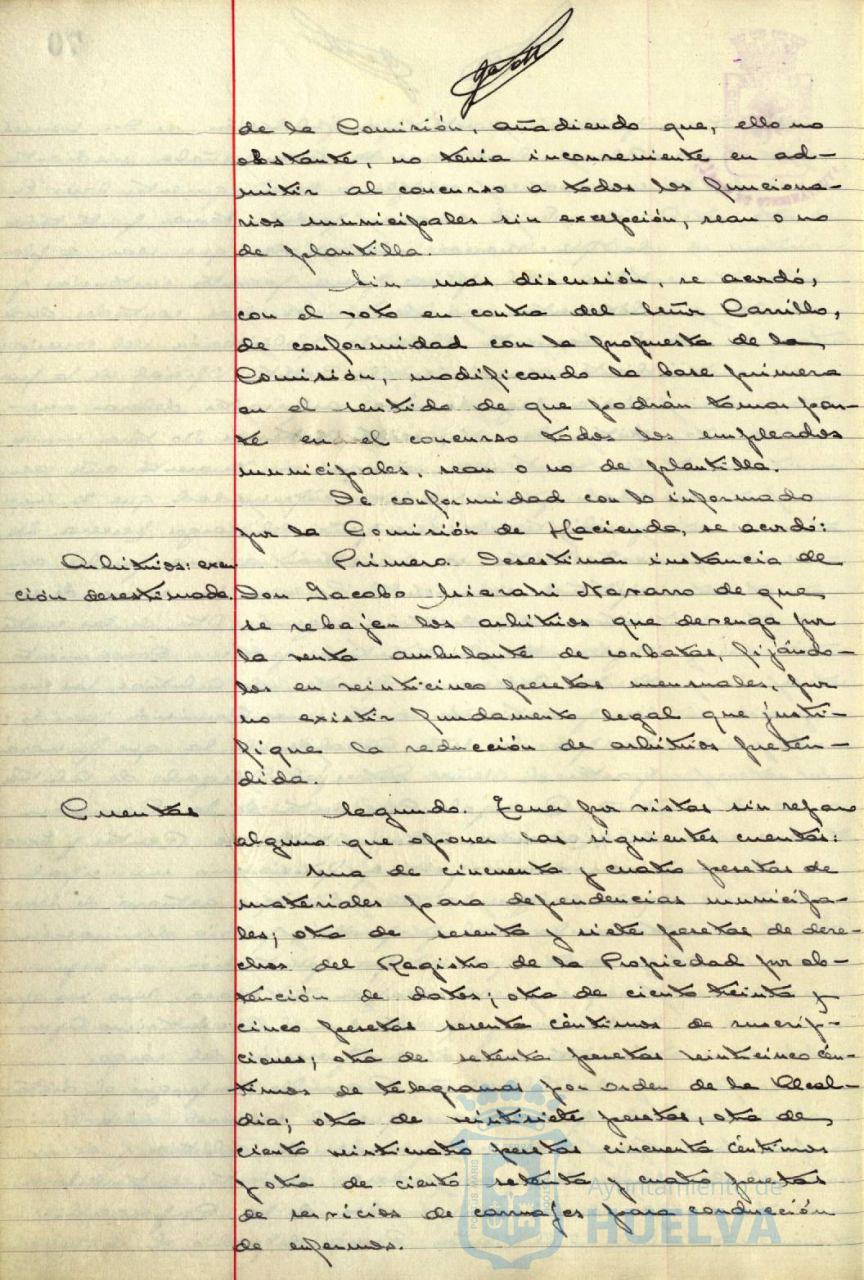 de la Comisión, añadiendo que, ello no
obstante, no tenía inconveniente en ad-
mitir al concurso a todos los funciona-
rios municipales sin excepción, sean o no
de plantilla.
Sin mas discusión, se acordó,
con el voto en contra del Señor Carrillo,
de conformidad con la propuesta de la
Comisión, modificando la base primera
en el sentido de que podrán tomar par-
te en el concurso todos los empleados
municipales, sean o no de plantilla.
De conformidad con lo informado
por la Comisión de Hacienda, se acordó:
Arbitrios: exen
ción desestimada.
Primero. Desestimar instancia de
Don Jacobo Navarro de que
se rebajen los arbitrios que devenga por
la venta ambulante de corbatas, fijándo-
los en veinticinco pesetas mensuales, por
no existir fundamento legal que justi-
fique la reducción de arbitrios preten-
dida.
Cuentas
Segundo. Tener por vistas sin reparo
alguno que oponer las siguientes cuentas:
Una de cincuenta y cuatro pesetas de
materiales para dependencias municipa-
les; otra de sesenta y siete pesetas de dere-
chos del Registro de la Propiedad por ob-
tención de datos; otra de ciento treinta y
cinco pesetas sesenta céntimos de suscrip-
ciones; otra de setenta pesetas veinticinco cén-
timos de telegramas por orden de la Alcal-
dia; otra de veintisiete pesetas, otra de
ciento veinticuatro pesetas cincuenta céntimos
y otra de ciento setenta y cuatro pesetas
de servicios de carruajes para conducción
de enfermos.
Ayuntamiento de
HUELVA